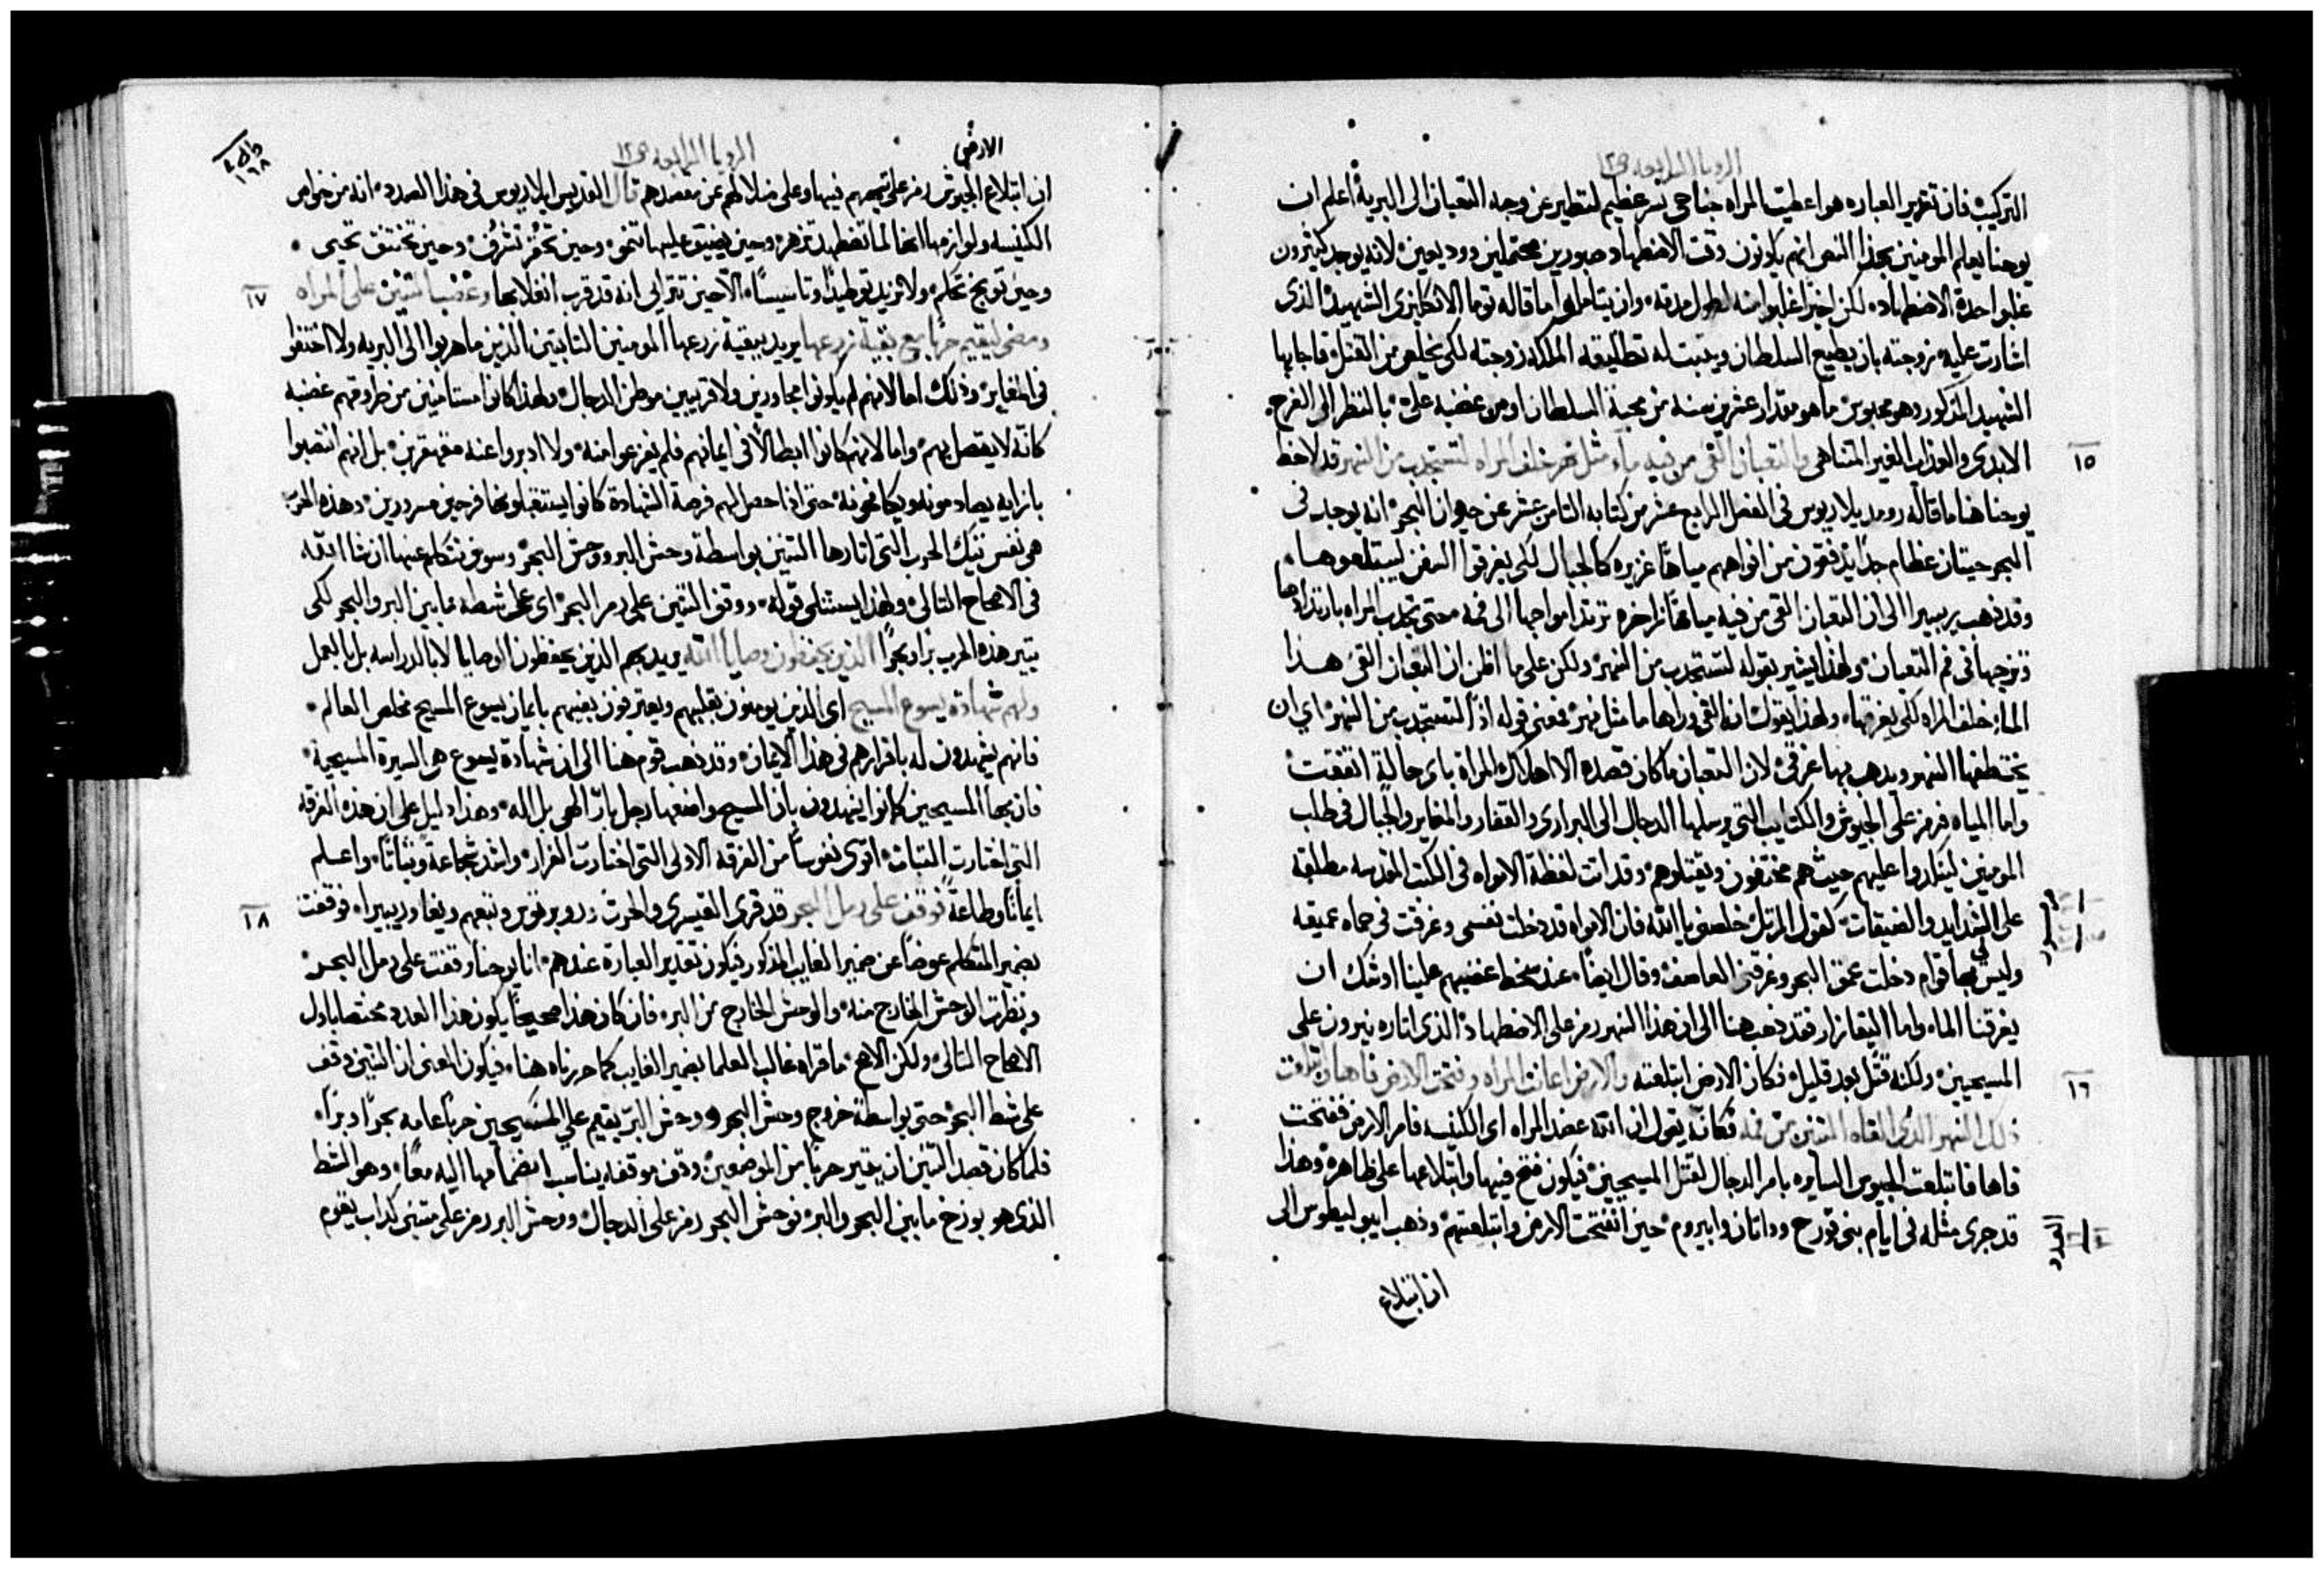 الرويا الرابعه ص١٢
التركيب فان تقرير العباره هو اعطيت المراه جناحي نسر عظيم لتطير عن وجه الثعبان الى البرية اعلم ان
يوحنا يعلم المومنين بهذا النص انهم يكونون وقت الاضطهاد صبورين محتملين ووديعين لانه يوجد كثيرون
غلبوا حدة الاضطهاد لكن اخيرا غلبوا منه لطول مدته وان يتاملوا ما قاله توما الانكليزي الشهيد الذي
اشارت عليه زوجته بان يطيع السلطان ويثبت له تطليقه الملكه زوجته لكي يخلص من القتل فاجابها
الشهيد المذكور وهو محبوس ما هو مقدار عشرين سنه من محبة السلطان او من غضبه علي بالنظر الى الفرح
١٥
الابدي والعذاب الغير المتناهي والثعبان القى من فيه ماء مثل نهر خلف المراه لتستجذب من النهر قد لاحظ
يوحنا هنا ما قاله في الفصل الرابع عشر من كتابه الثامن عشر عن حيوان البحر انه يوجد في
البحر حيتان عظام جدا يدفقون من افواههم مياها غزيره كالجبال لكي يغرقوا السفن ليبتلعوها
وقد ذهب ريبيرا الى ان الثعبان القى من فيه مياها زاخره ترتد امواجها الى فمه حتى تجذب المراه بارتدادها
وتزجها في فم الثعبان ولهذا يشير بقوله لتستجذب من النهر ولكن على ما اظن ان الثعبان القى هذا
الماء خلف المراه لكي يغرقها ولهذا يقول انه القى وراها ما مثل نهر فمعنى قوله اذا لتستجذب من النهر اي ان
يختطفها النهر ويذهب بها غرقي لان الثعبان ما كان قصده الا اهلاك المراة باي حالة اتفقت
واما المياه فرمز على الجيوش والكتايب التي يرسلها الدجال الى البراري والقفار والمغاير والجبال في طلب
المومنين ليتكدروا عليهم حيث هم مختفون ويقتلوهم وقد اتت لفظة الامواه في الكتب المقدسه مطلقه
على الشدايد والضيقات كقول المرتل خلصني يا الله فان الامواه قد دخلت نفسي وغرقت في حماه عميقه
وليس لي بها قوام دخلت عمق البحر وغرقتني العاصف وقال ايضا عند سخط غضبهم علينا اوشك ان
يغرقنا الماء واما اليقازار فقد ذهب هنا الى ان هذا النهر رمز على الاضطهاد الذي اثاره نيرون على
١٦
المسيحيين ولكنه قتل بعد قليل فكان الارض ابتلعته والارض اعانت المراه وفتحت الارض فاها وابتلعت
ذلك النهر الذي القاه التنين من فمه فكانه يقول ان الله عضد المراه اي الكنيسه فامر الارض ففتحت
فاها فابتلعت الجيوش السايره بامر الدجال لقتل المسيحيين فيكون فتح فيها وابتلاعها على ظاهره وهذا
العدد
قد جرى مثله في ايام بني قورح وداثان وابيروم حين انفتحت الارض وابتلعتهم وذهب ايبوليطوس الى
ان ابتلاع
الارض
الرويا الرابعه ص١٢
١٦٨
ان ابتلاع الجيوش رمز على تيههم فيها وعلى ضلالهم عن مقصدهم قال القديس ايلاريوس في هذا الصدد انه من خواص
الكنيسه ولوازمها انها لما تضطهد تزهر وحين يضيق عليها تنمو وحين تحتقر تشرف وحين تختنق تحيي
١٧
وحين توبخ تحلم ولا تزيد توطيدا وتاسيسا الا حين تتراى انه قد قرب انغلابها وغضب التنين على المراه
ومضى ليقيم حربا مع بقية زرعها يريد ببقية زرعها المومنين الثابتين الذين ما هربوا الى البريه ولا اختفوا
في المغاير وذلك اما لانهم لم يكونوا مجاورين ولا قريبين موطن الدجال ولهذا كانوا مستامنين من طروقهم غضبه
كانه لا يتصل بهم واما لانهم كانوا ابطالا في ايمانهم فلم يفزعوا منه ولا ادبروا عنه متقهقرين بل انهم انتصبوا
بازايه يصادمونه ويكافحونه حتى اذا حصل لهم فرصة الشهادة كانوا يستقبلونها فرحين مسرورين وهذه الحرب
هي نفس تيك الحرب التي اثارها التنين بواسطة وحش البر ووحش البحر وسوف نتكلم عنها ان شا الله
في الاصحاح التالي ولهذا يستثني قوله ووقف التنين على رمل البحر اي على شطه ما بين البر والبحر لكي
يثير هذه الحرب برا وبحرا الذين يحفظون وصايا الله يريد بهم الذين يحفظون الوصايا لا بالدراسه بل بالعمل
ولهم شهادة يسوع المسيح اي الذين يومنون بقلبهم ويعترفون بفيهم بايمان يسوع المسيح مخلص العالم
فانهم يشهدون له باقرارهم في هذا الايمان وقد ذهب قوم هنا الى ان شهادة يسوع هي السيرة المسيحية
فان بها المسيحيين كانوا يشهدون بان المسيح واضعها رجل بار الهي بل اله وهذا دليل على ان هذه الفرقه
التي اختارت الثبات اقوى نفوسا من الفرقه الاولى التي اختارت الفرار واشد شجاعة وثباتا واعلم
١٨
ايمانا وطاعة فوقف على رمل البحر قد قرى القيسري والحرث وروبرتوس وتبعهم ويغا وريبيرا فوقفت
بضمير المتكلم عوضا عن ضمير الغايب المذكور فيكون تقدير العبارة عندهم انا يوحنا وقفت على رمل البحر
ونظرت الوحش الخارج منه والوحش الخارج من البر فان كان هذا صحيحا يكون هذا العدد مختصا باول
الاصحاح التالي ولكن الاصح ما قراه غالب العلما بضمير الغايب كما حررناه هنا فيكون المعنى ان التنين وقف
على شط البحر حتى بواسطة خروج وحش البحر ووحش البر يقيم على المسيحيين حربا عامه بحرا وبرا
فلما كان قصد التنين ان يثير حربا من الموضعين وقف موقفا يناسب انضمامها اليه معا وهو الشط
الذي هو برزخ ما بين البحر والبر فوحش البحر رمز على الدجال ووحش البر رمز على متنبي كداب يقوم